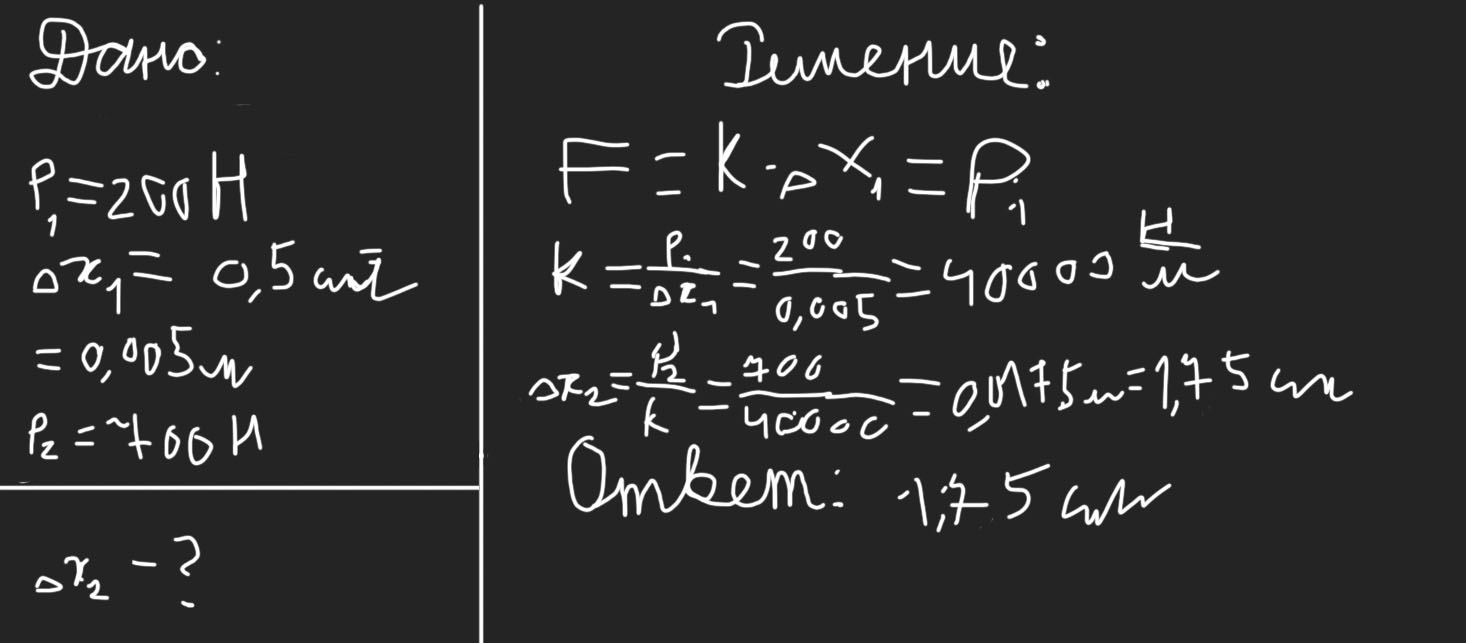 Дано:
P₁=200 Н
Δx₁= 0,5 см=
= 0,005 м
P₂ = 700 Н
Δx₂ - ?
Решение:
F = K · Δx₁ = P₁
K = P₁/Δx₁ = 200/0,005 = 40000 Н/м
Δx₂ = P₂/K = 700/40000 = 0,0175 м = 1,75 см
Ответ: 1,75 см